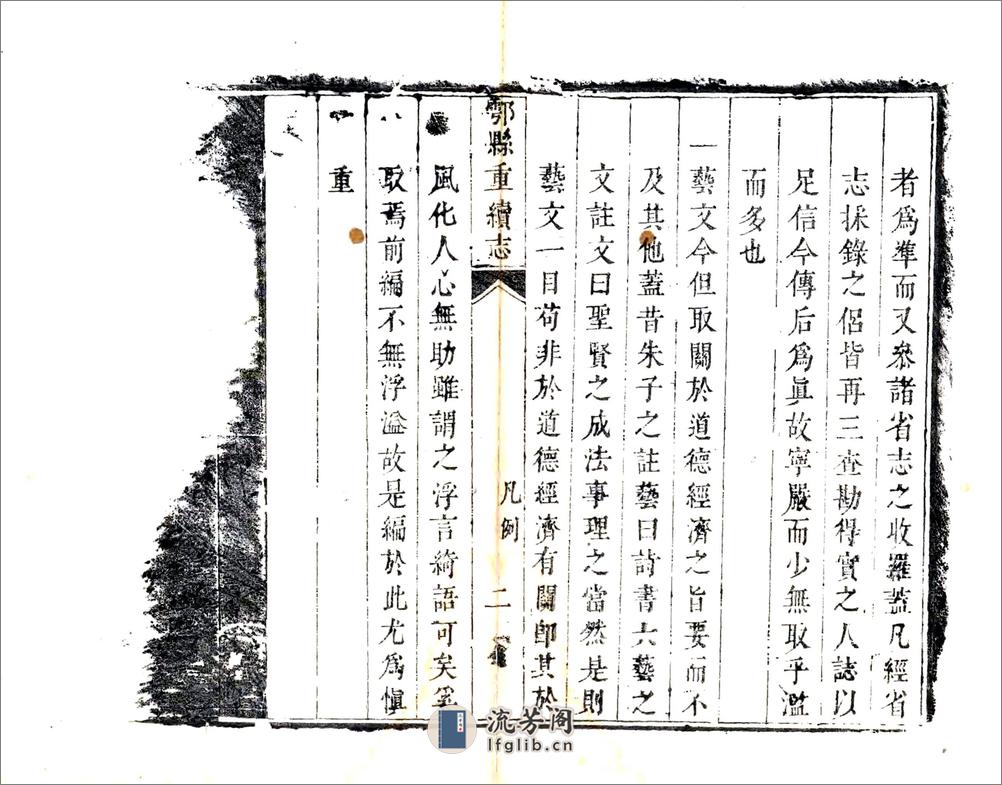 者為準而又參諸省志之收羅蓋凡經省
志採錄之侶皆再三查勘得實之人誌以
足信今傳后為眞故寧嚴而少無取乎濫
而多也
一藝文今但取關於道德經濟之旨要而不
及其他蓋昔朱子之註藝曰詩書六藝之
文註文曰聖賢之成法事理之當然是則
藝文一目荷非於道德經濟有關卽其於
鄠縣重續志 凡例 二
風化人心無助雖謂之浮言綺語可矣奚
取焉前編不無浮溢故是編於此尤為愼
重
流芳阁
lfglib.cn